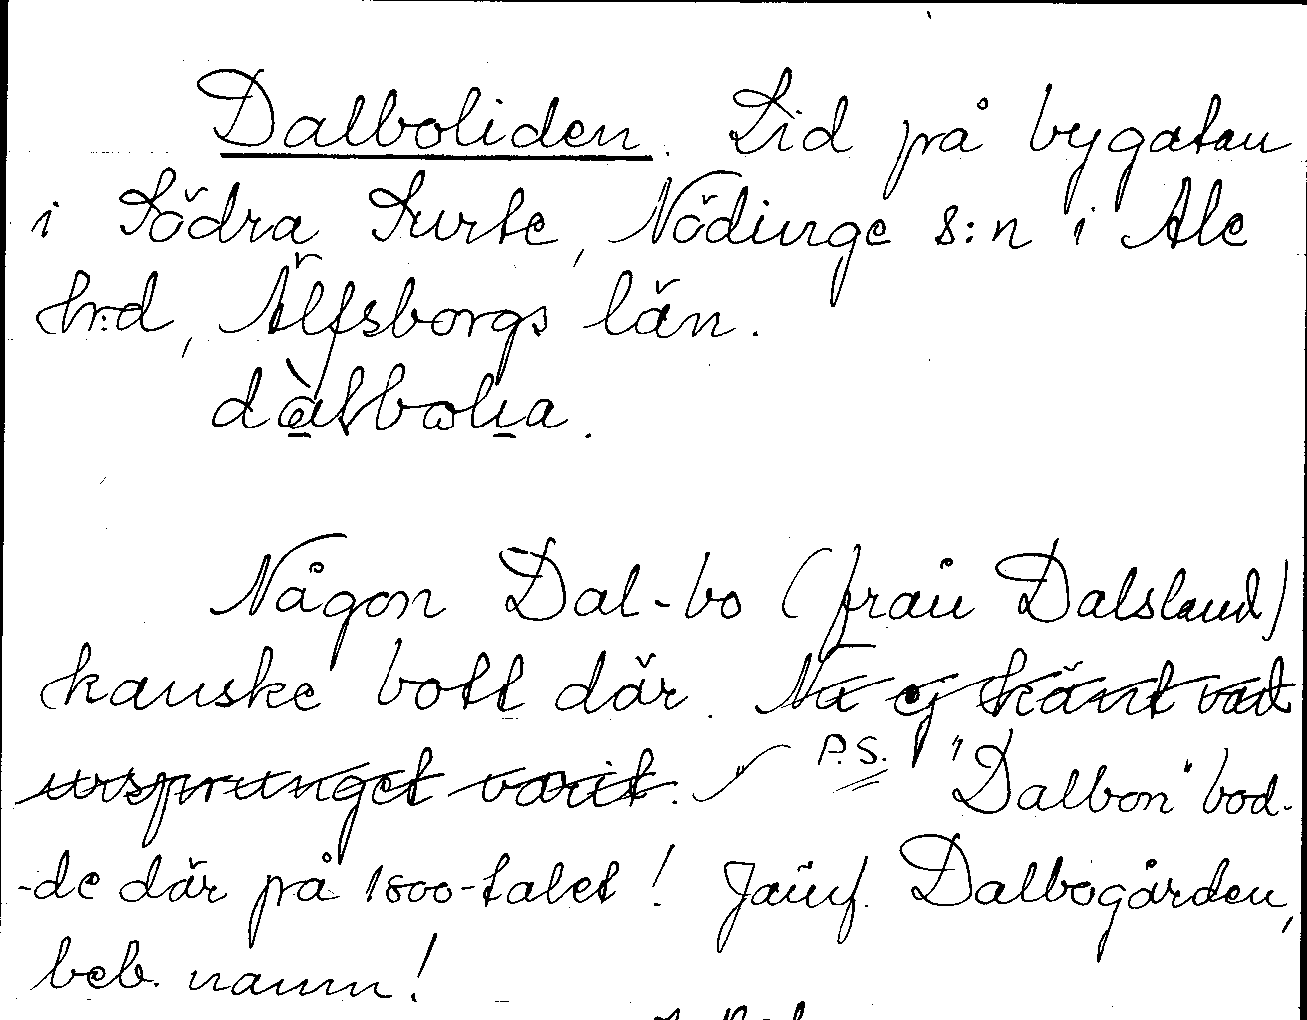 Dalboliden. Lid på bygatan
i Södra Surte, Nödinge s:n i Ale
hrd, Älfsborgs län.
Någon Dal-bo (från Dalsland)
kanske bott där. Nu ej känt vad
ursprunget varit. P.S. "Dalbon" bod-
-de där på 1800-talet! Jämf. Dalbogården,
beb. namn!